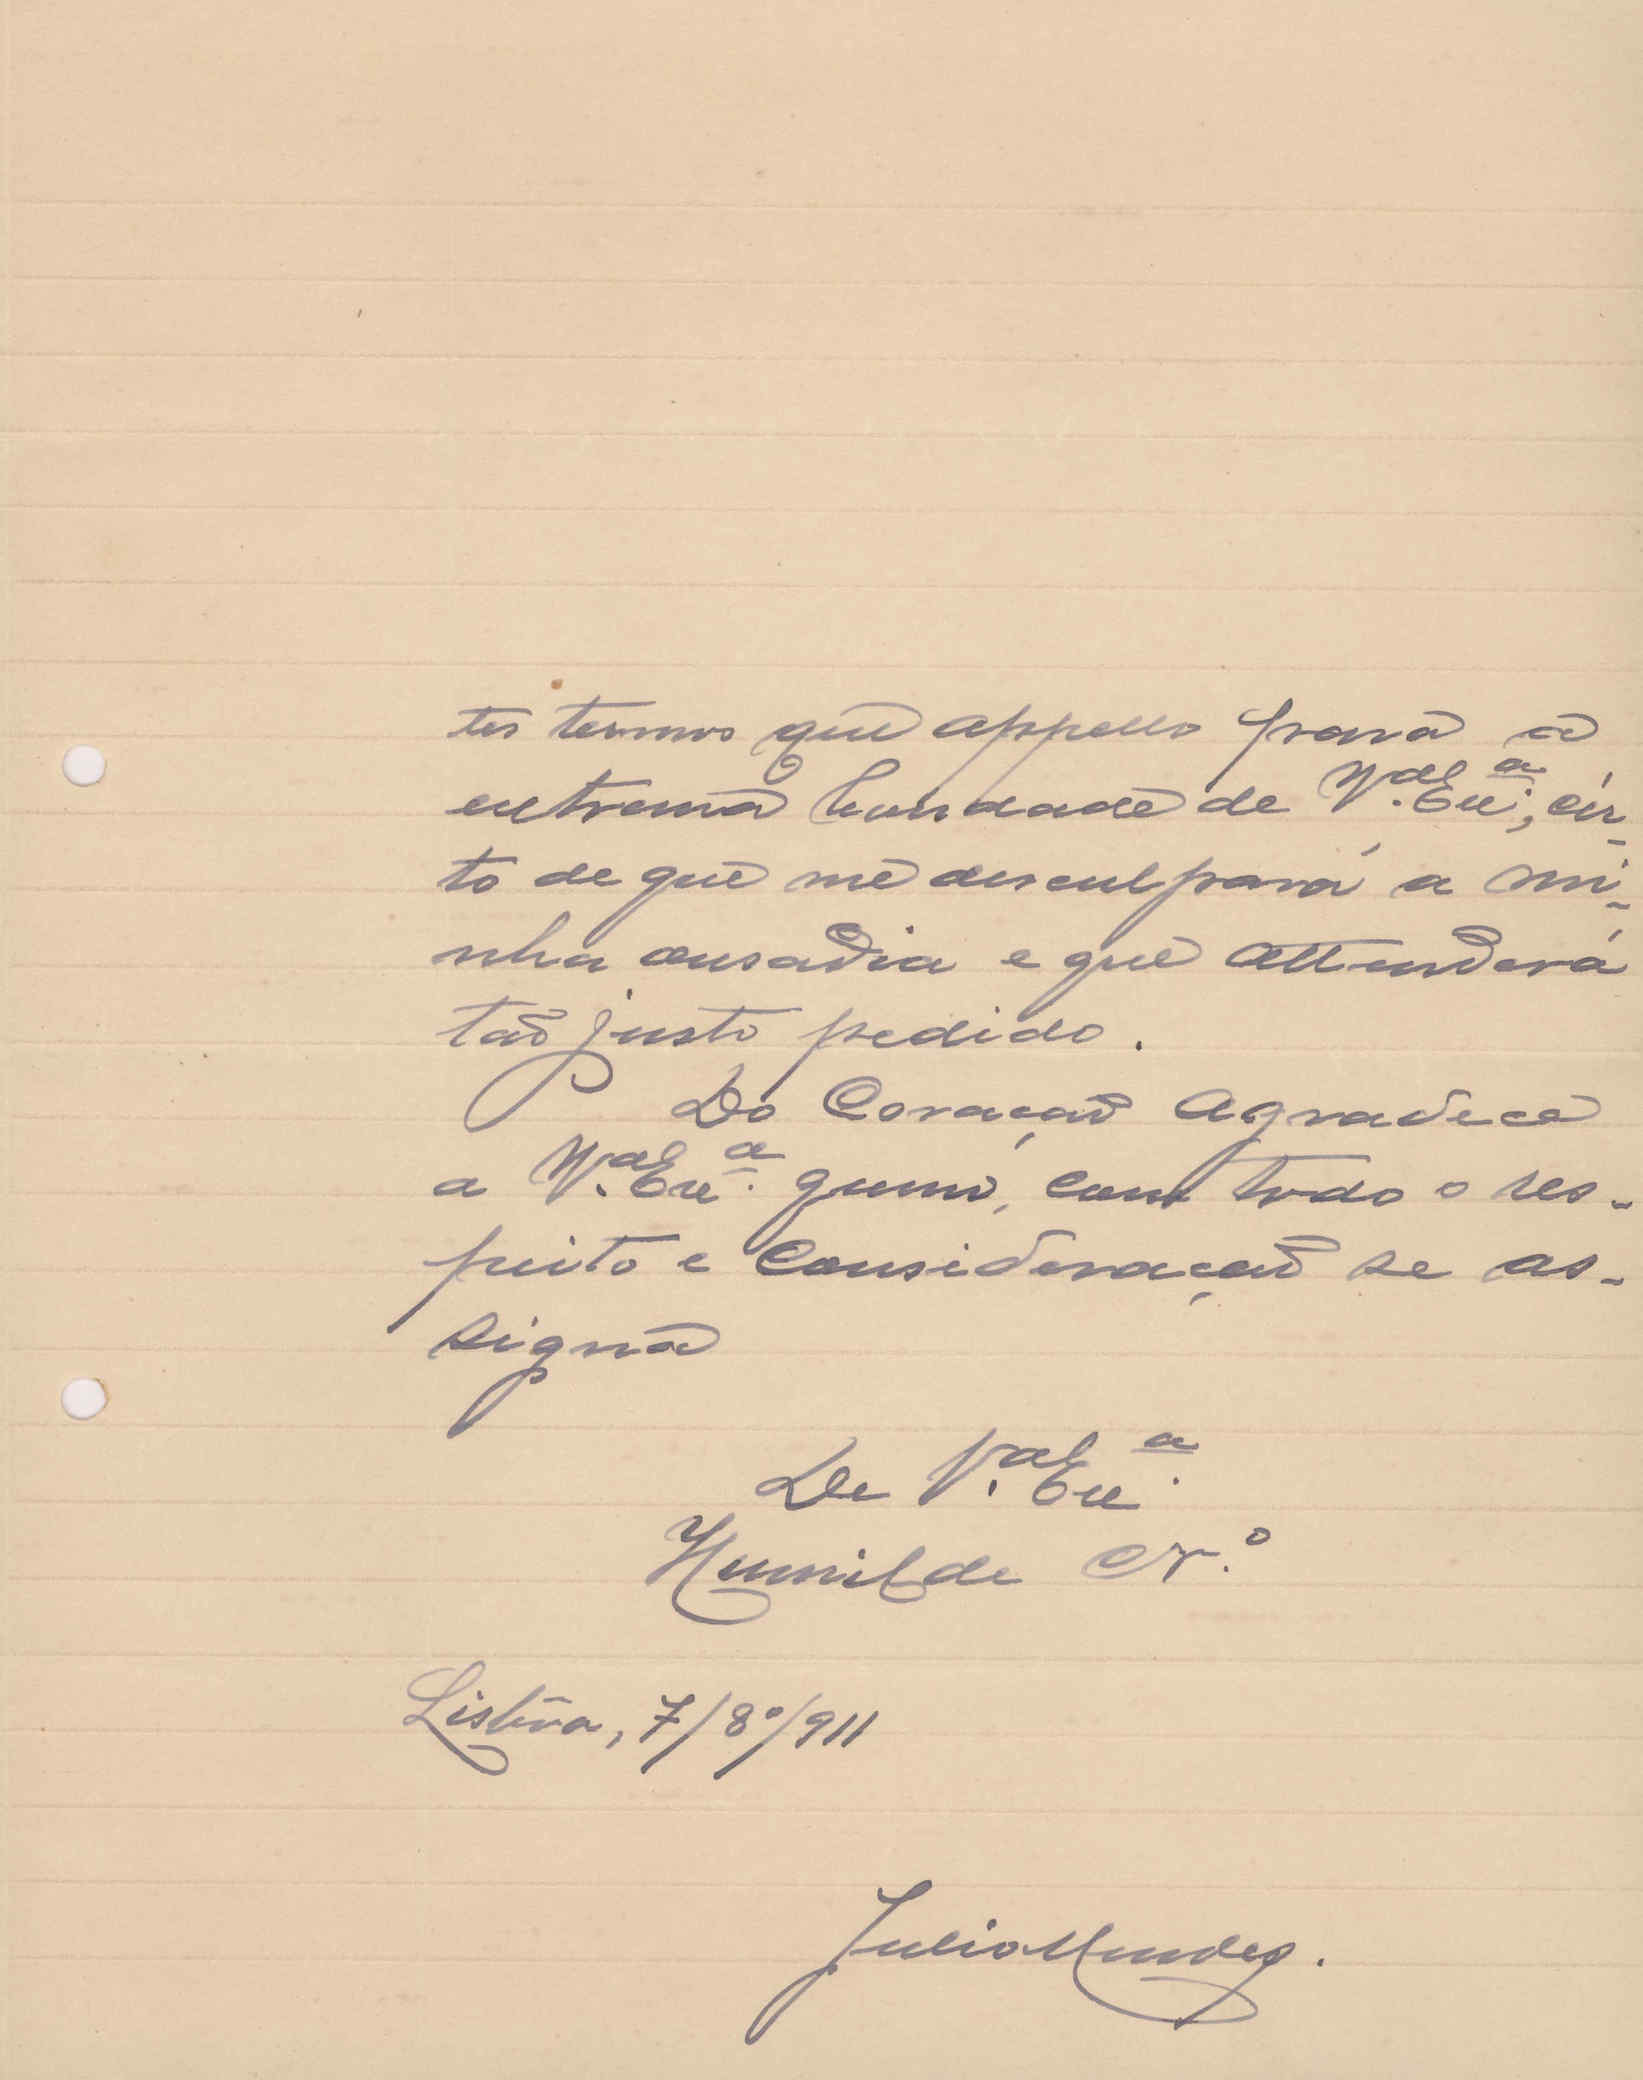 tes termos que appello para a
extrema bondade de V.ª Exª., cer-
to de que me desculpará a mi-
nha ousadia e que attenderá
tão justo pedido.
Do Coração agradece
a V.ª Exª. quem, com todo o res-
peito e consideração se as-
signa
De V.ª Exª.
Humilde Cr.º
Lisbôa, 7/8º/911
Julio Mendes.